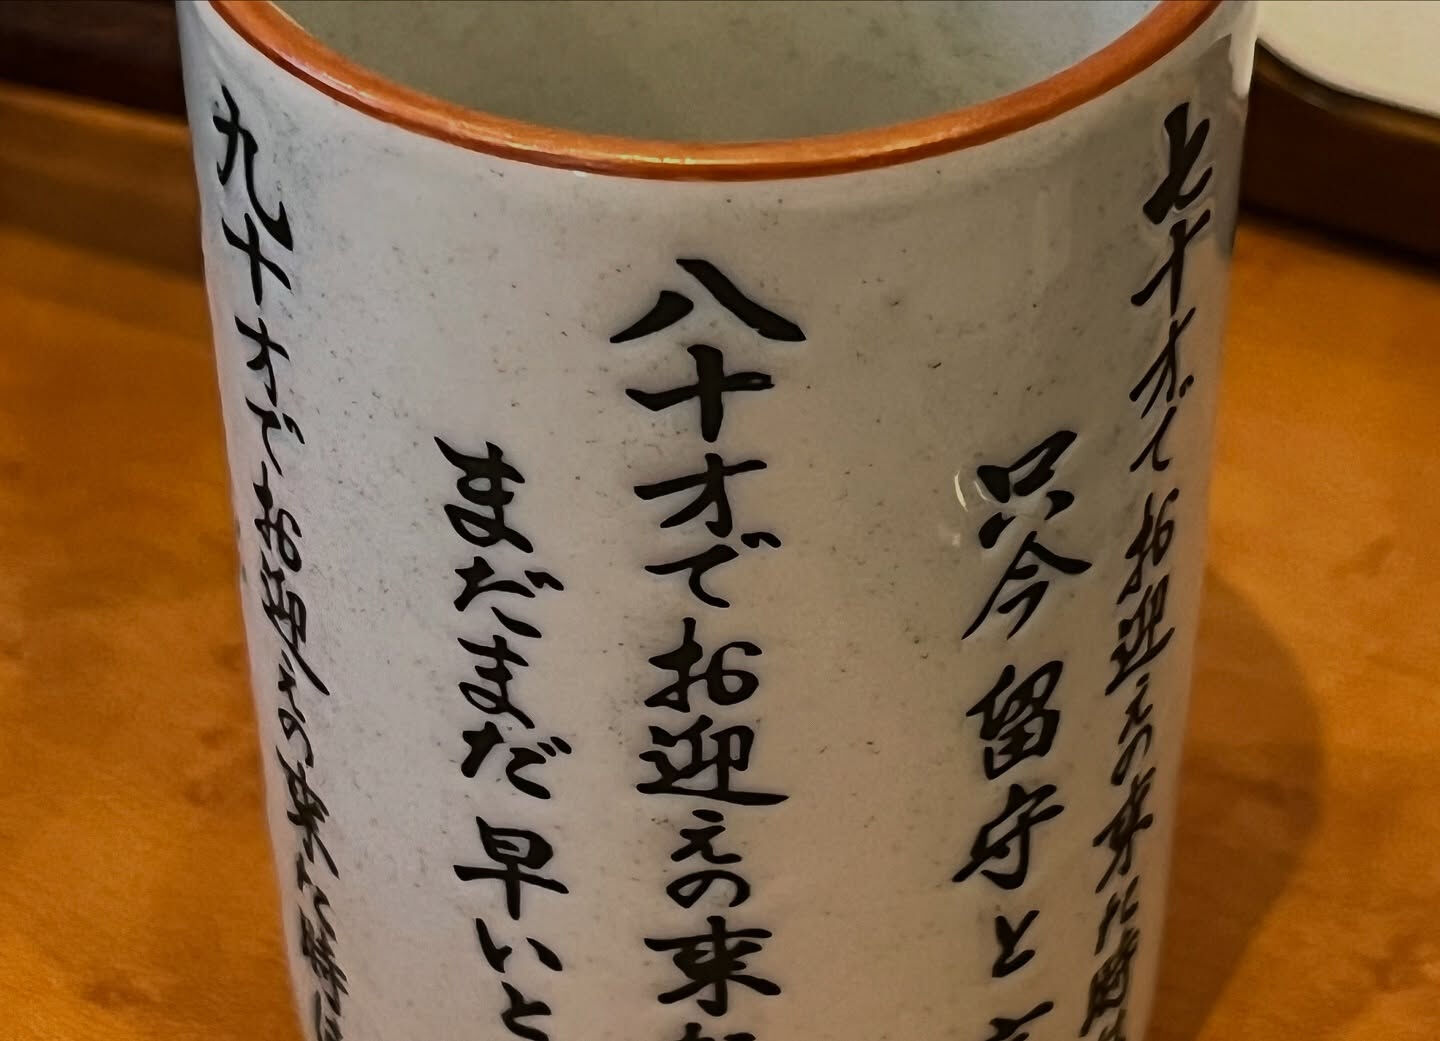 七十才でお迎えの来た時は
只今留守と
八十才でお迎えの来た
まだまだ早いと
九十才でお迎えの来た時は